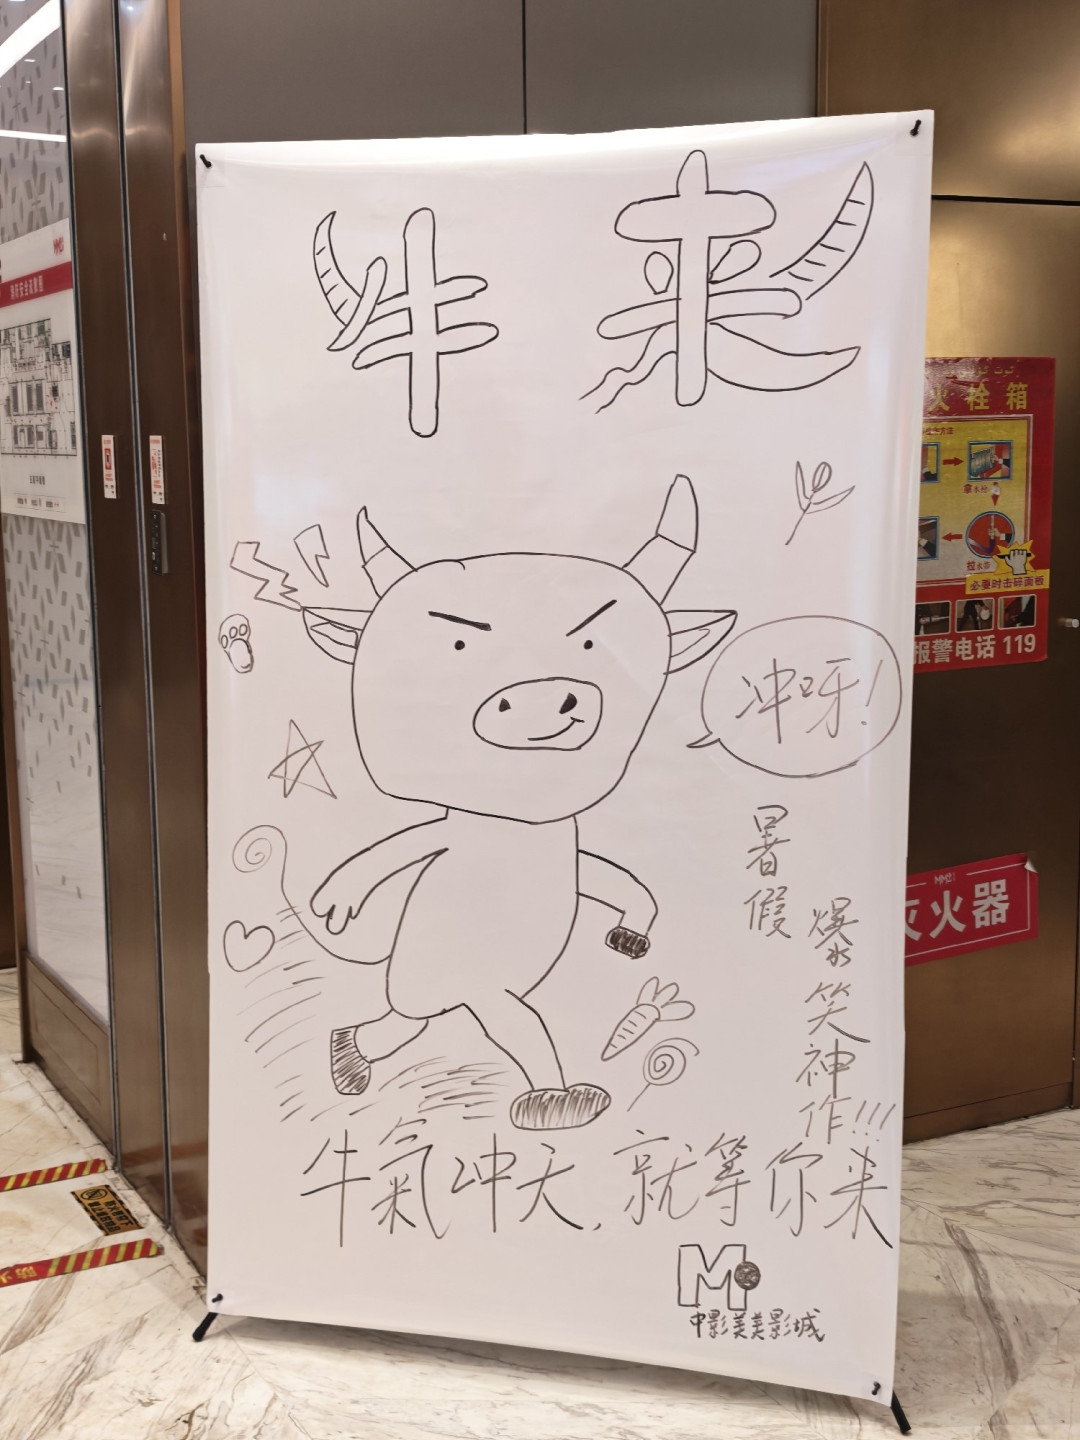 牛来
冲呀!
暑假
爆笑神作!!!
牛氣冲天,就等你来
M
中影美美影城
火栓箱
必要时击碎面板
报警电话 119
灭火器